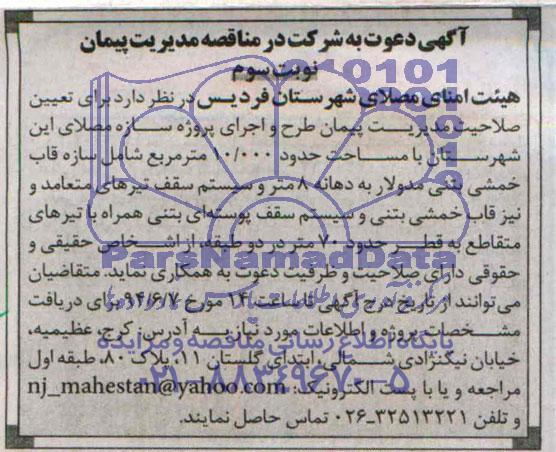 آگهی دعوت به شرکت در مناقصه مدیریت پیمان
نوبت سوم
هیئت امنای مصلای شهرستان فردیس در نظر دارد برای تعیین
صلاحیت مدیریت پیمان طرح و اجرای پروژه سازه مصلای این
شهرستان با مساحت حدود ۱۰/۰۰۰ مترمربع شامل سازه قاب
خمشی بتنی مدولار به دهانه ۸ متر و سیستم سقف تیرهای متعامد و
نیز قاب خمشی بتنی و سیستم سقف پوسته‌ای بتنی همراه با تیرهای
متقاطع به قطر حدود ۷۰ متر در دو طبقه، از اشخاص حقیقی و
حقوقی دارای صلاحیت و ظرفیت دعوت به همکاری نماید. متقاضیان
می‌توانند از تاریخ درج آگهی تا ساعت ۱۴ مورخ ۹۴/۶/۷ برای دریافت
مشخصات پروژه و اطلاعات مورد نیاز به آدرس: کرج، عظیمیه،
خیابان نیکنژادی شمالی، ابتدای گلستان ۱۱، پلاک ۸۰، طبقه اول
مراجعه و یا با پست الکترونیک: nj_mahestan@yahoo.com
و تلفن ۳۲۵۱۳۲۲۱-۰۲۶ تماس حاصل نمایند.
ParsNamadData
پایگاه اطلاع رسانی مناقصه و مزایده
۰۲۱-۸۸۳۴۹۶۷۰-۵